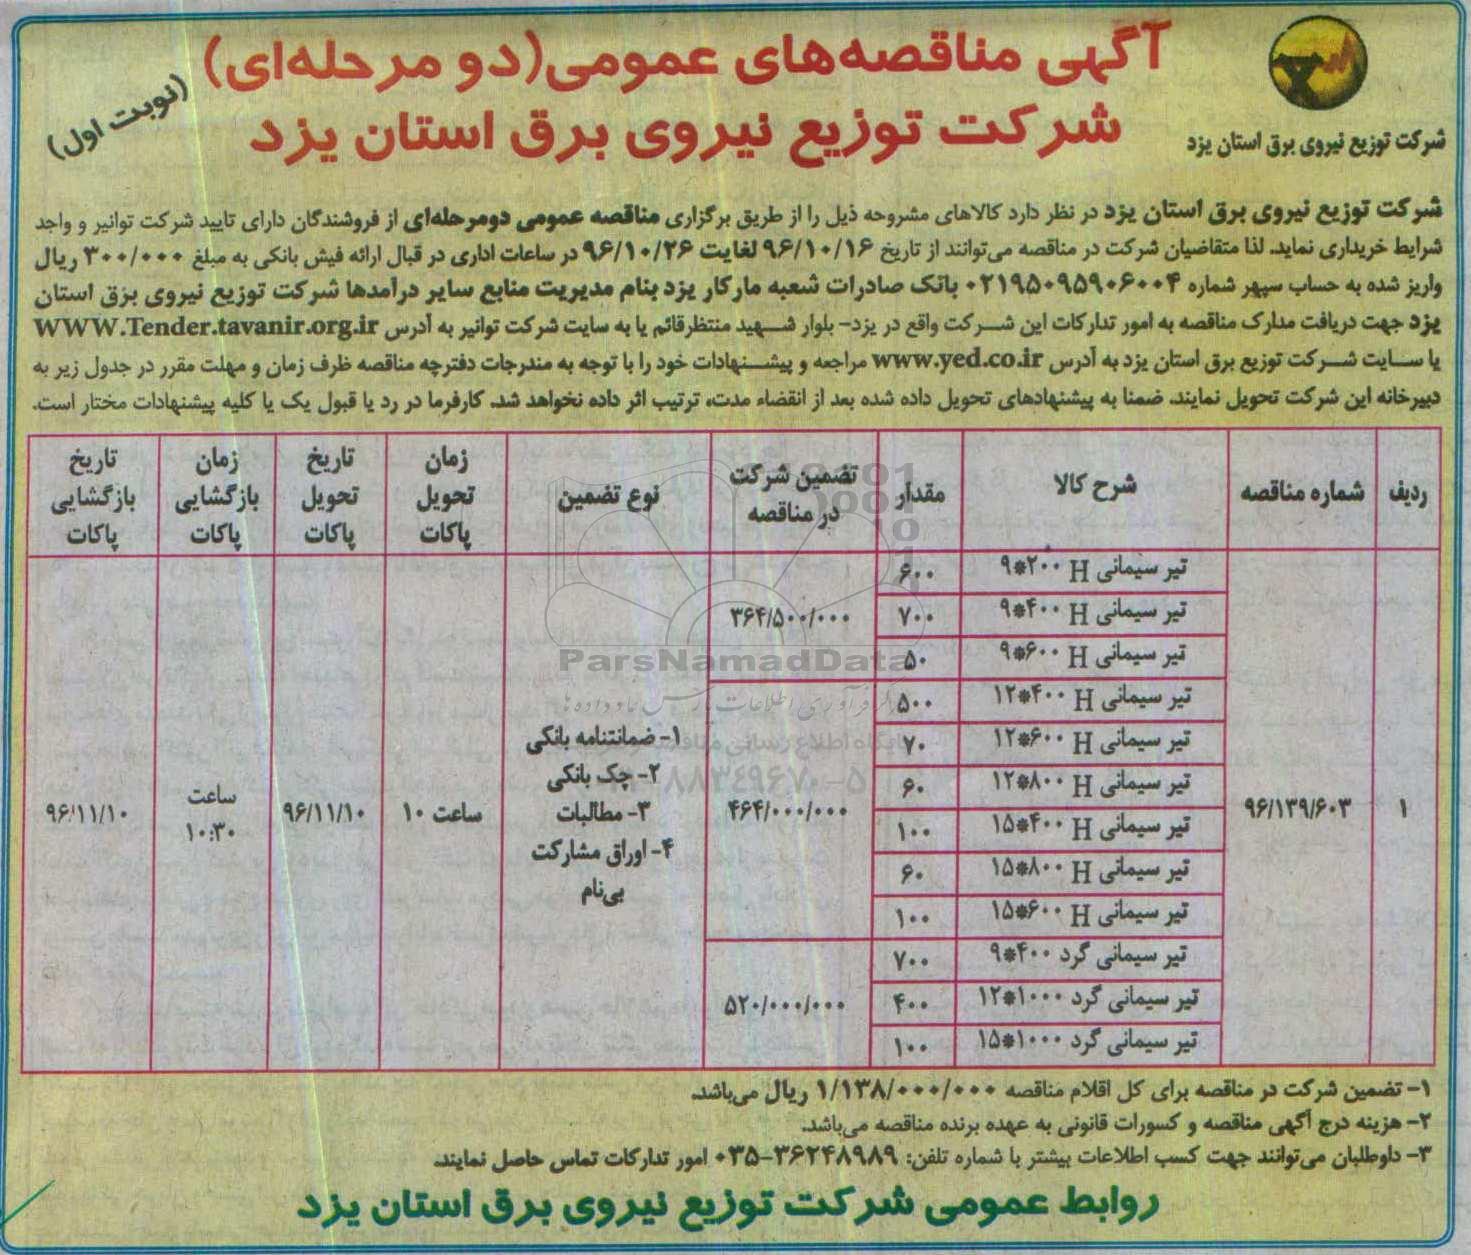 آگهی مناقصه‌های عمومی(دو مرحله‌ای)
شرکت توزیع نیروی برق استان یزد
(نوبت اول)
شرکت توزیع نیروی برق استان یزد
شرکت توزیع نیروی برق استان یزد در نظر دارد کالاهای مشروحه ذیل را از طریق برگزاری مناقصه عمومی دومرحله‌ای از فروشندگان دارای تایید شرکت توانیر و واجد
شرایط خریداری نماید. لذا متقاضیان شرکت در مناقصه می‌توانند از تاریخ ۹۶/۱۰/۱۶ لغایت ۹۶/۱۰/۲۶ در ساعات اداری در قبال ارائه فیش بانکی به مبلغ ۳۰۰/۰۰۰ ریال
واریز شده به حساب سپهر شماره ۰۲۱۹۵۰۹۵۹۰۶۰۰۴ بانک صادرات شعبه مارکار یزد بنام مدیریت منابع سایر درآمدها شرکت توزیع نیروی برق استان
یزد جهت دریافت مدارک مناقصه به امور تدارکات این شرکت واقع در یزد- بلوار شهید منتظرقائم یا به سایت شرکت توانیر به آدرس WWW.Tender.tavanir.org.ir
یا سایت شرکت توزیع برق استان یزد به آدرس www.yed.co.ir مراجعه و پیشنهادات خود را با توجه به مندرجات دفترچه مناقصه ظرف زمان و مهلت مقرر در جدول زیر به
دبیرخانه این شرکت تحویل نمایند. ضمنا به پیشنهادهای تحویل داده شده بعد از انقضاء مدت، ترتیب اثر داده نخواهد شد. کارفرما در رد یا قبول یک یا کلیه پیشنهادات مختار است.
ردیف شماره مناقصه شرح کالا مقدار تضمین شرکت در مناقصه نوع تضمین زمان تحویل پاکات تاریخ تحویل پاکات زمان بازگشایی پاکات تاریخ بازگشایی پاکات
تیر سیمانی H ۹*۲۰۰ ۶۰۰
تیر سیمانی H ۹*۴۰۰ ۷۰۰ ۳۶۴/۵۰۰/۰۰۰
تیر سیمانی H ۹*۶۰۰ ۵۰
تیر سیمانی H ۱۲*۴۰۰ ۵۰۰
تیر سیمانی H ۱۲*۶۰۰ ۷۰ ۱- ضمانتنامه بانکی
تیر سیمانی H ۱۲*۸۰۰ ۶۰ ۲- چک بانکی
۱ ۹۶/۱۳۹/۶۰۳ تیر سیمانی H ۱۵*۴۰۰ ۱۰۰ ۴۶۴/۰۰۰/۰۰۰ ۳- مطالبات ساعت ۱۰ ۹۶/۱۱/۱۰ ساعت ۱۰:۳۰ ۹۶/۱۱/۱۰
تیر سیمانی H ۱۵*۸۰۰ ۶۰ ۴- اوراق مشارکت
تیر سیمانی H ۱۵*۶۰۰ ۱۰۰ بی‌نام
تیر سیمانی گرد ۹*۴۰۰ ۷۰۰
تیر سیمانی گرد ۱۲*۱۰۰۰ ۴۰۰ ۵۲۰/۰۰۰/۰۰۰
تیر سیمانی گرد ۱۵*۱۰۰۰ ۱۰۰
ParsNamadData
۸۸۳۴۹۶۷۰-۵
۱- تضمین شرکت در مناقصه برای کل اقلام مناقصه ۱/۱۳۸/۰۰۰/۰۰۰ ریال می‌باشد.
۲- هزینه درج آگهی مناقصه و کسورات قانونی به عهده برنده مناقصه می‌باشد.
۳- داوطلبان می‌توانند جهت کسب اطلاعات بیشتر با شماره تلفن: ۳۶۲۴۸۹۸۹-۰۳۵ امور تدارکات تماس حاصل نمایند.
روابط عمومی شرکت توزیع نیروی برق استان یزد